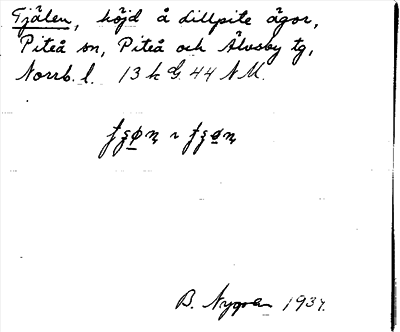 Tjälen, höjd å Lillpite ägor,
Piteå sn, Piteå och Älvsby tg,
Norrb. l. 13 k G. 44 N M.
B. Nygren 1937.